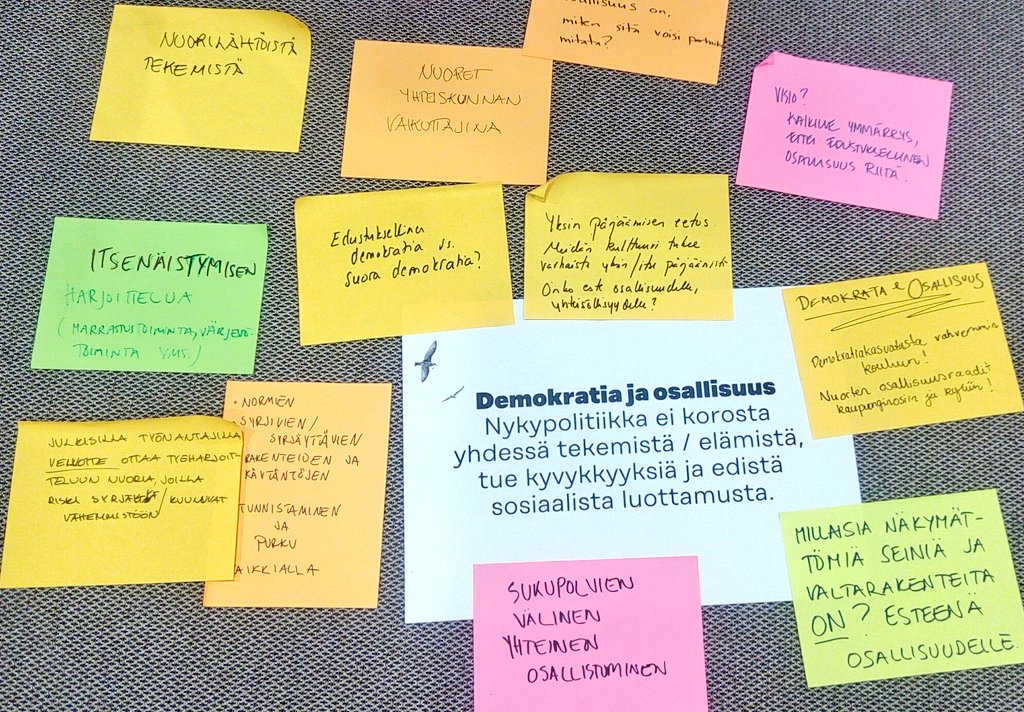 NUORILÄHTÖISTÄ
TEKEMISTÄ
NUORET
YHTEISKUNNAN
VAIKUTTAJINA
on,
miten sitä voisi
mitata?
VISIO?
KAIKILLE YMMÄRRYS,
ETTEI EDUSTUKSELLINEN
OSALLISUUS RIITÄ.
ITSENÄISTYMISEN
HARJOITTELUA
(HARRASTUSTOIMINTA, VÄRJESTÖ-
TOIMINTA YMS.)
Edustuksellinen
demokratia vs.
suora demokratia?
Yksin pärjäämisen eetos.
Meidän kulttuuri tukee
varhaista yksin/itse pärjäämistä
Onko este osallisuudelle,
yhteisöllisyydelle?
DEMOKRATIA & OSALLISUUS
Demokratiakasvatusta vahvemmin
kouluun!
Nuorten osallisuusraadit
kaupunginosiin ja kyliin!
Demokratia ja osallisuus
Nykypolitiikka ei korosta
yhdessä tekemistä / elämistä,
tue kyvykkyyksiä ja edistä
sosiaalista luottamusta.
JULKISILLA TYÖNANTAJILLA
VELVOITE OTTAA TYÖHARJOIT-
TELUUN NUORIA, JOILLA
RISKI SYRJÄYTYÄ / KUULUVAT
VÄHEMMISTÖÖN
• NORMIEN
SYRJIVIEN/
SYRJÄYTTÄVIEN
RAKENTEIDEN JA
KÄYTÄNTÖJEN
TUNNISTAMINEN
JA
PURKU
AIKKIALLA
SUKUPOLVIEN
VÄLINEN
YHTEINEN
OSALLISTUMINEN
MILLAISIA NÄKYMÄT-
TÖMIÄ SEINIÄ JA
VALTARAKENTEITA
ON? ESTEENÄ
OSALLISUUDELLE.